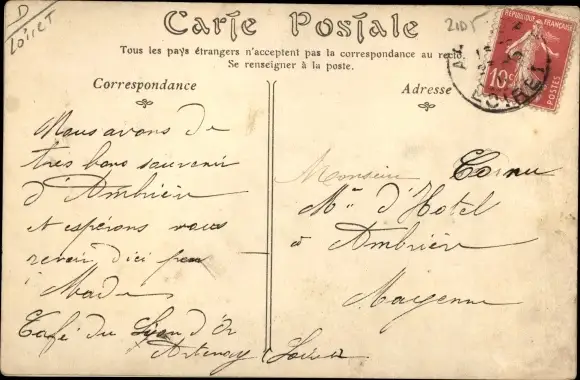 D
Loiret
Carte Postale
2105
RÉPUBLIQUE FRANÇAISE
10c
POSTES
LOIRET
Tous les pays étrangers n'acceptent pas la correspondance au recto.
Se renseigner à la poste.
Correspondance
Adresse
Nous avons de
tres bons souvenir
d'Ambrièr
et espérons vous
revoir d'ici peu
Made
Café du Lyon d'Or
Artenay Loiret
Monsieur Cornu
M. d'Hotel
à Ambrièr
Mayenne